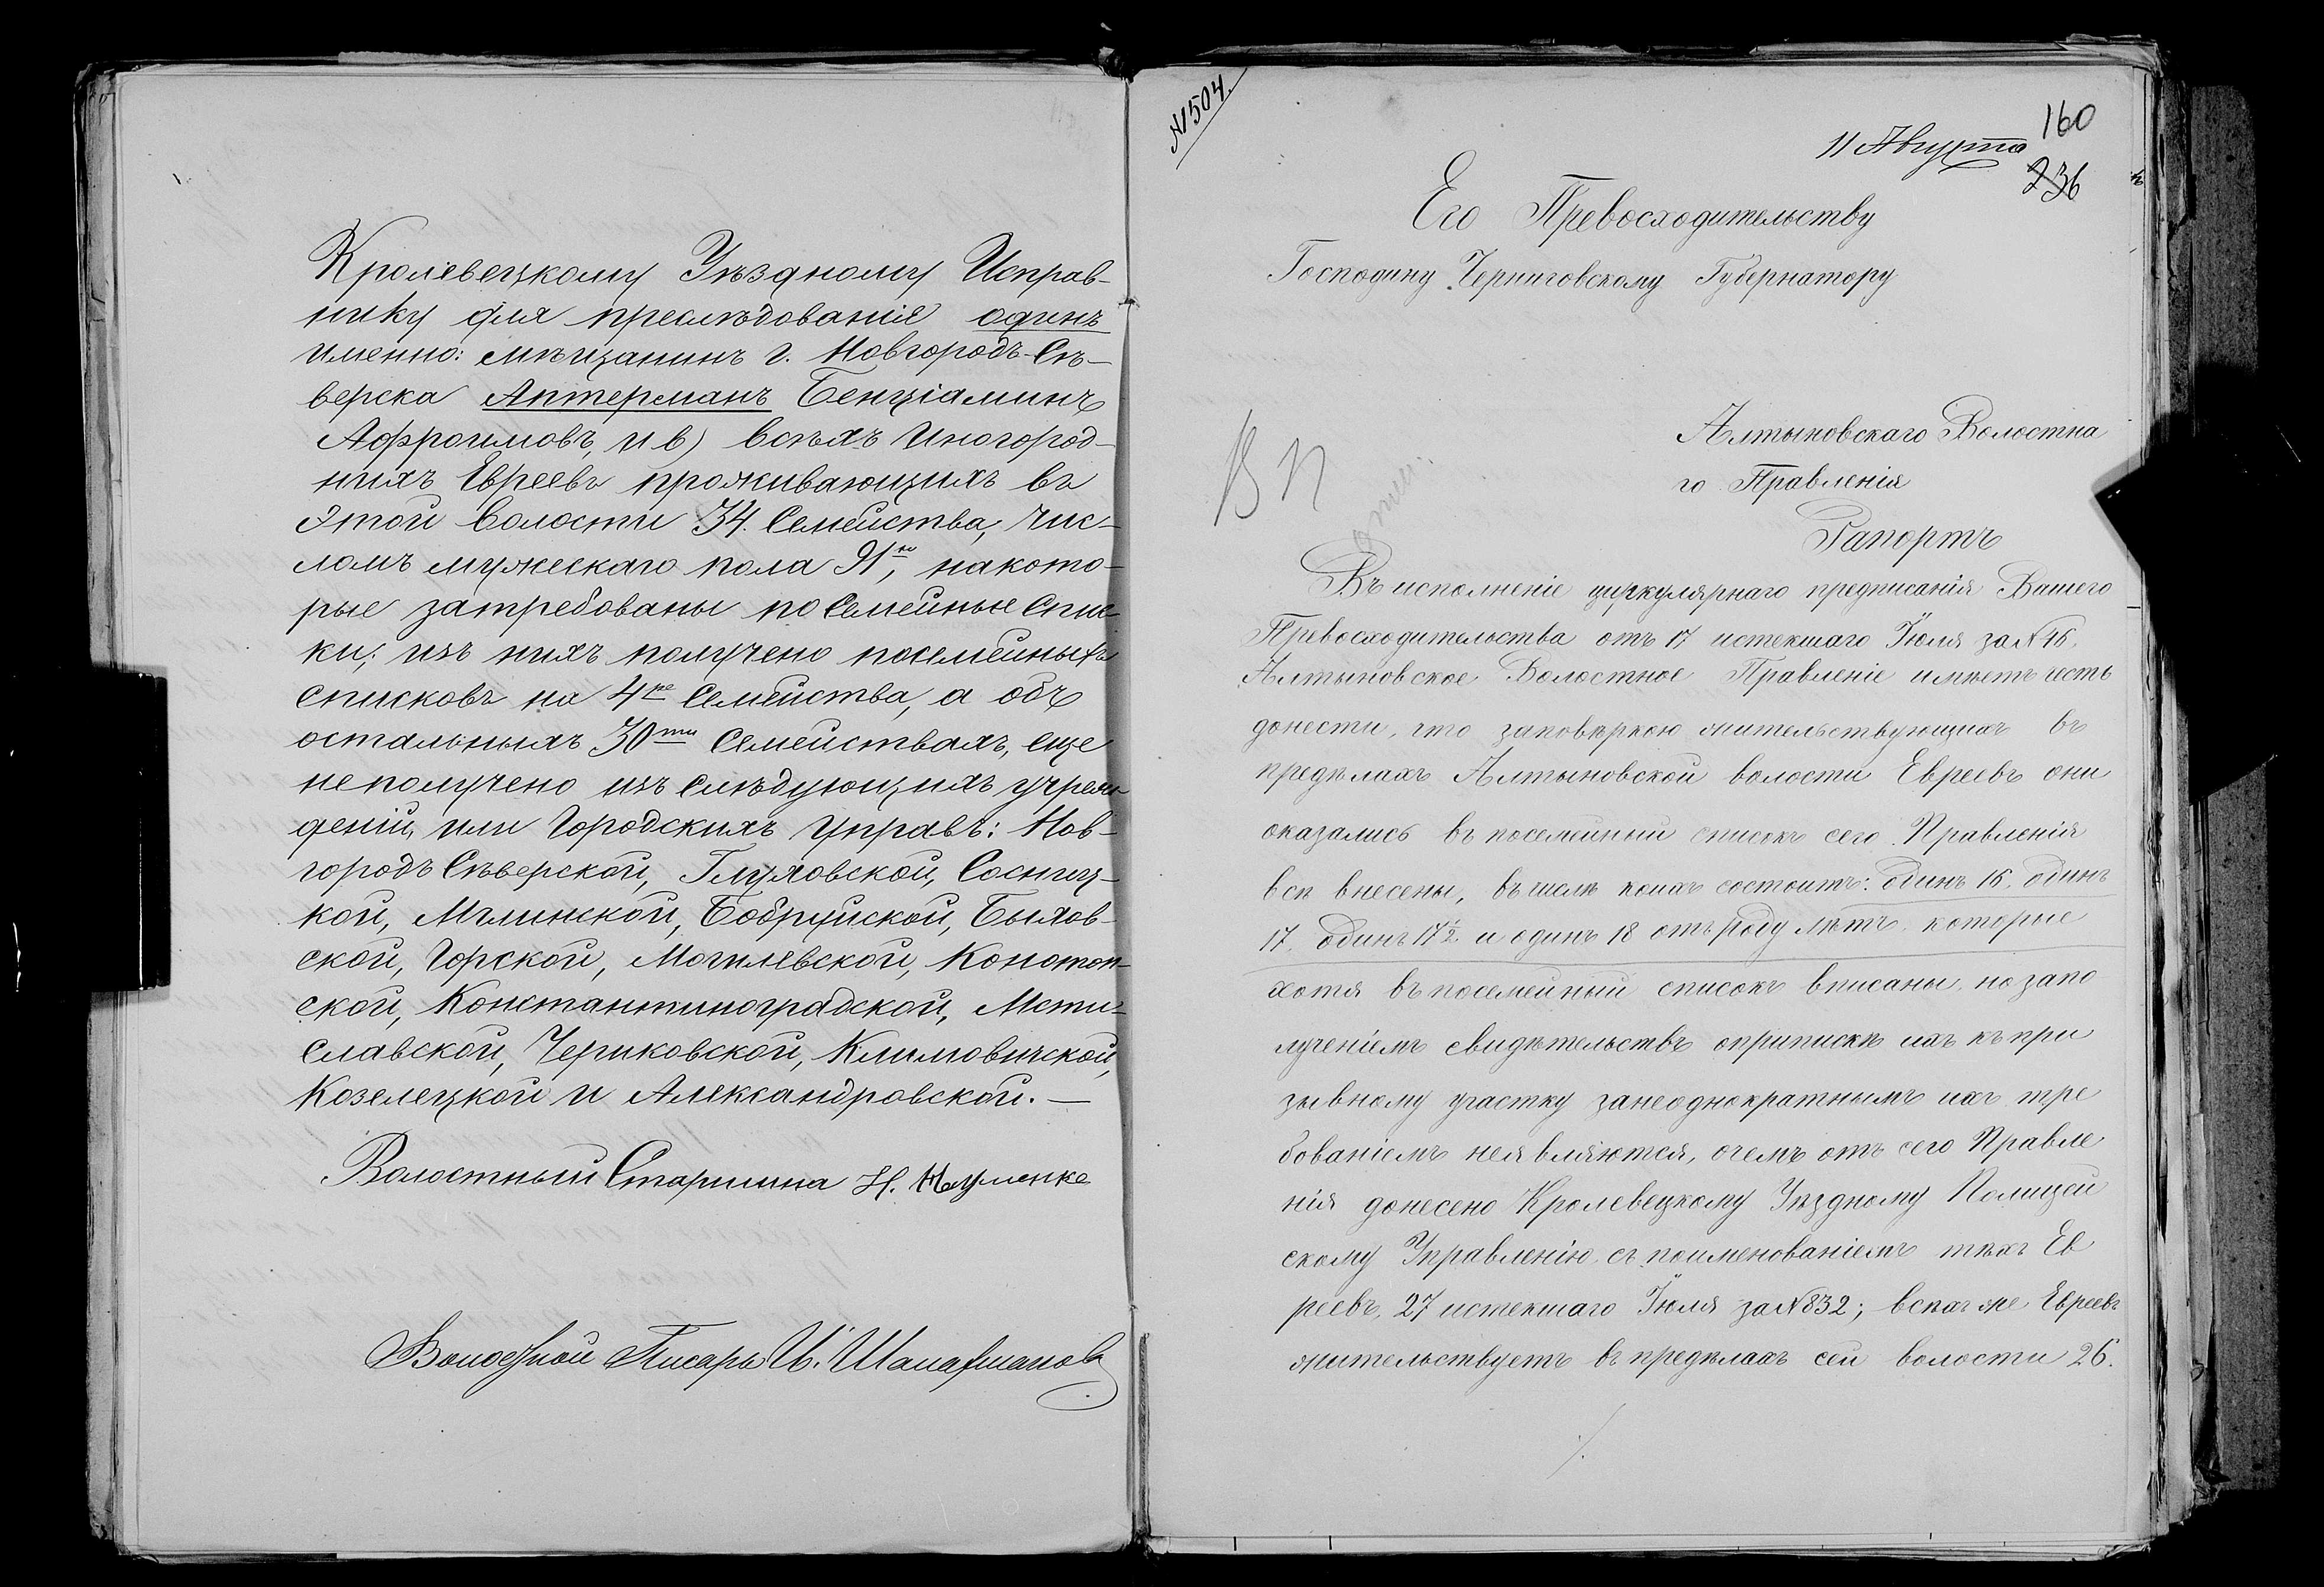 Кролевецкому Уѣздному Исправ-
нику для преслѣдованія одинъ
именно: мѣщанинъ г. Новгородъ-Сѣ-
верска Аптерманъ Бенціаминъ
Афроимовъ, и в) всѣхъ Иногород-
нихъ Евреевъ проживающихъ въ
этой волости 34. Семейства, чис-
ломъ мужескаго пола 91, на кото-
рые затребованы посемейные спис-
ки; изъ нихъ получено посемейныхъ
списковъ на 4ре Семейства, а объ
остальныхъ 30ти Семействахъ, еще
не получено изъ слѣдующихъ учреж-
деній, или Городскихъ Управъ: Нов-
городъ Сѣверской, Глуховской, Сосниц-
кой, Мглинской, Бобруйской, Быхов-
ской, Горской, Могилевской, Конотоп-
ской, Константиноградской, Мсти-
славской, Чериковской, Климовичской,
Козелецкой и Александровской. —
Волостный Старшина Н. Науменко
Волостной Писарь И.
№ 1504.
11 Августа
160
236
Его Превосходительству
Господину Черниговскому Губернатору
Алтыновскаго Волостна
го Правленія
Рапортъ
ВП
Въ исполненіе циркулярнаго предписанія Вашего
Превосходительства отъ 17 истекшаго Іюля за №46.
Алтыновское Волостное Правленіе имѣетъ честь
донести, что заповѣркою жительствующихъ въ
предѣлахъ Алтыновской волости Евреевъ они
оказались въ посемейный списокъ сего Правленія
всѣ внесены, въ числѣ коихъ состоитъ: одинъ 16. одинъ
17. одинъ 17½ и одинъ 18 отъ роду лѣтъ, которые
хотя въ посемейный списокъ вписаны, но запо
лученіемъ свидѣтельствъ оприпискѣ ихъ къ при
зывному участку занеоднократнымъ ихъ тре
бованіемъ неявляются, очемъ отъ сего Правле
нія донесено Кролевецкому Уѣздному Полицей
скому Управленію съ поименованіемъ тѣхъ Ев
реевъ, 27 истекшаго Іюля за №832; всѣхъ же Евреевъ
жительствуетъ въ предѣлахъ сей волости 26.